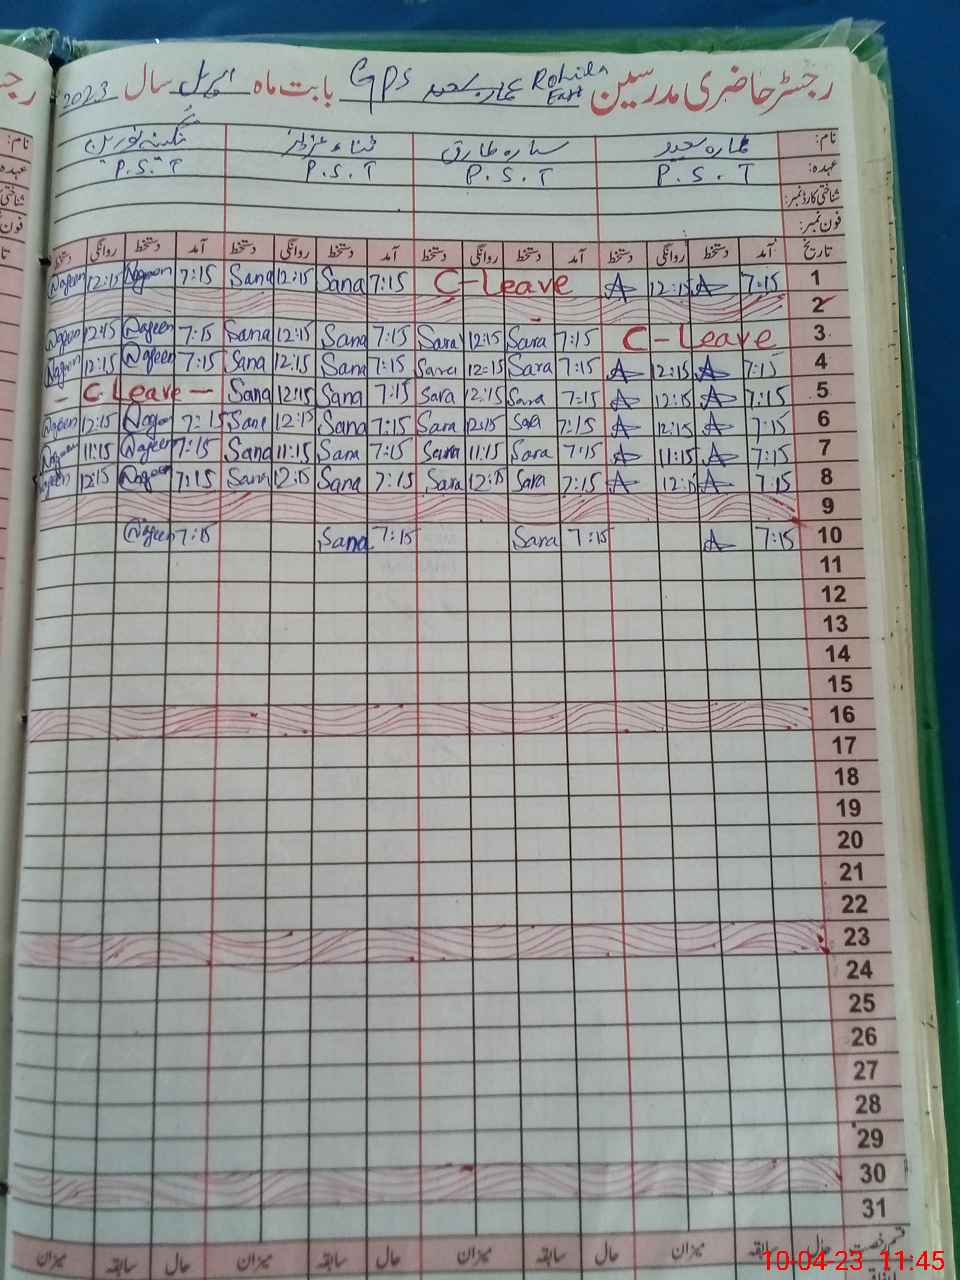 رجسٹر حاضری مدرسین Rohila East عمار سعید GPS بابت ماہ اپریل سال 2023
نام: عمارہ سعید سارہ طارق ثناء نگینہ نورین
عہدہ: P.S.T P.S.T P.S.T P.S.T
شناختی کارڈ نمبر:
فون نمبر:
تاریخ آمد دستخط روانگی دستخط آمد دستخط روانگی دستخط آمد دستخط روانگی دستخط آمد دستخط روانگی دستخط
Nageen 12:15 Nageen 7:15 Sana 12:15 Sana 7:15 C-Leave A 12:15 A 7:15 1
2
Nageen 12:15 Nageen 7:15 Sana 12:15 Sana 7:15 Sara 12:15 Sara 7:15 C-Leave 3
Nageen 12:15 Nageen 7:15 Sana 12:15 Sana 7:15 Sara 12:15 Sara 7:15 A 12:15 A 7:15 4
- C Leave - Sana 12:15 Sana 7:15 Sara 12:15 Sara 7:15 A 12:15 A 7:15 5
Nageen 12:15 Nageen 7:15 Sana 12:15 Sana 7:15 Sara 12:15 Sara 7:15 A 12:15 A 7:15 6
Nageen 11:15 Nageen 7:15 Sana 11:15 Sana 7:15 Sara 11:15 Sara 7:15 A 11:15 A 7:15 7
Nageen 12:15 Nageen 7:15 Sana 12:15 Sana 7:15 Sara 12:15 Sara 7:15 A 12:15 A 7:15 8
9
Nageen 7:15 Sana 7:15 Sara 7:15 A 7:15 10
11
12
13
14
15
16
17
18
19
20
21
22
23
24
25
26
27
28
29
30
31
قسم رخصت حال سابقہ میزان حال سابقہ میزان حال سابقہ میزان حال سابقہ میزان
10-04-23 11:45